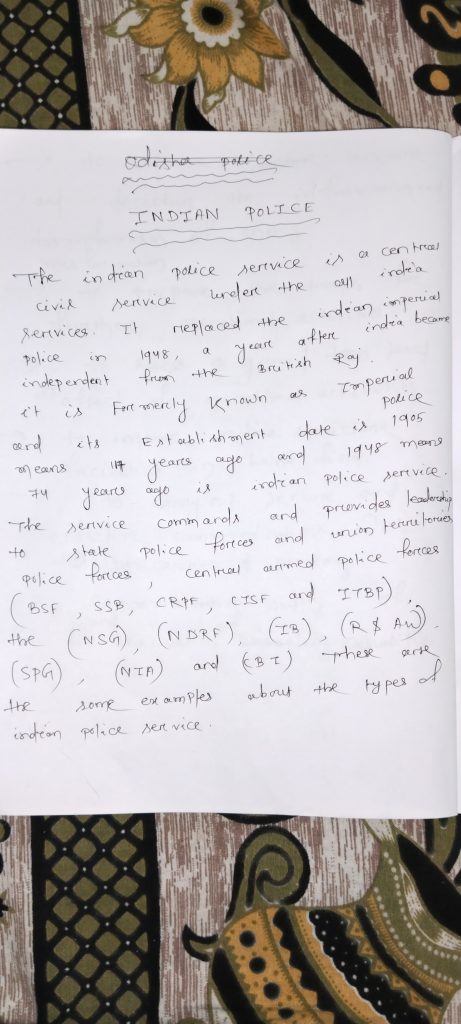 odisha police
INDIAN POLICE
The indian police service is a central
civil service under the all india
services. It replaced the indian imperial
police in 1948, a year after india became
independent from the British Raj.
it is Formerly Known as Imperial
police
and its Establishment date is 1905
means 117 years ago and 1948 means
74 years ago is indian police service.
The service commands and provides leadership
to state police forces and union territories
police forces, central armed police forces
(BSF, SSB, CRPF, CISF and ITBP),
the (NSG), (NDRF), (IB), (R & AW).
(SPG), (NIA) and (CBI) These are
the some examples about the types of
indian police service.